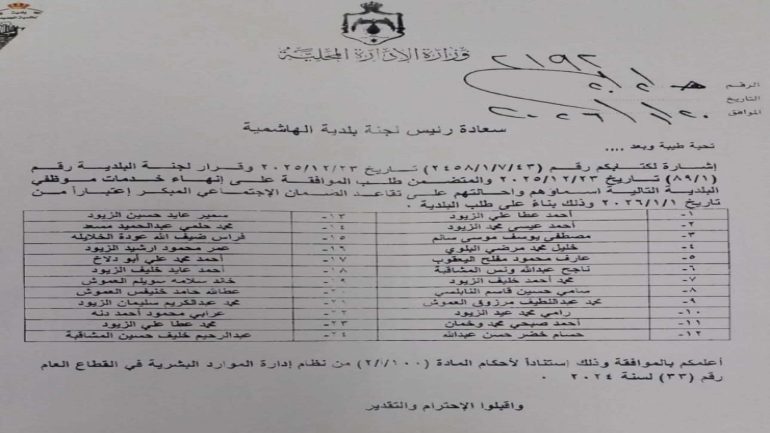 وزارة الإدارة المحلية
الرقم هـ
٢١٩٢
التاريخ
الموافق ٢٠٢٦/١/٢٠
سعادة رئيس لجنة بلدية الهاشمية
تحية طيبة وبعد ....
إشارة لكتابكم رقم (٢٤٥٨/١/٧/٤٣) تاريخ ٢٠٢٥/١٢/٢٣ وقرار لجنة البلدية رقم
(٨٩/١) تاريخ ٢٠٢٥/١٢/٢٣ والمتضمن طلب الموافقة على إنهاء خدمات موظفي
البلدية التالية اسماؤهم واحالتهم على تقاعد الضمان الإجتماعي المبكر إعتباراً من
تاريخ ٢٠٢٦/١/١ وذلك بناءً على طلب البلدية .
١- أحمد عطا علي الزيود ١٣- سمير عايد حسين الزيود
٢- أحمد عيسى محمد الزيود ١٤- محمد حلمي عبدالحميد مسعد
٣- مصطفى يوسف موسى سالم ١٥- فراس ضيف الله عودة الخلايله
٤- خليل محمد مرضي البلوي ١٦- عمر محمود ارشيد الزيود
٥- عارف محمود مفلح اليعقوب ١٧- أحمد محمد علي أبو دلاخ
٦- ناجح عبدالله ونس المشاقبة ١٨- أحمد عايد خليف الزيود
٧- محمد أحمد خليف الزيود ١٩- خالد سلامه سويلم العموش
٨- سامي حسين قاسم النابلسي ٢٠- عطاالله حامد خنيفس العموش
٩- محمد عبداللطيف مرزوق العموش ٢١- محمد عبدالكريم سليمان الزيود
١٠- رامي محمد عيد الزيود ٢٢- عرابي محمود أحمد دنه
١١- أحمد صبحي محمد وخمان ٢٣- محمد عطا علي الزيود
١٢- حسام خضر حسن عبدالله ٢٤- عبدالرحيم خليف حسين المشاقبة
أعلمكم بالموافقة وذلك إستناداً لأحكام المادة (٢/أ/١٠٠) من نظام إدارة الموارد البشرية في القطاع العام
رقم (٣٣) لسنة ٢٠٢٤ .
واقبلوا الإحترام والتقدير